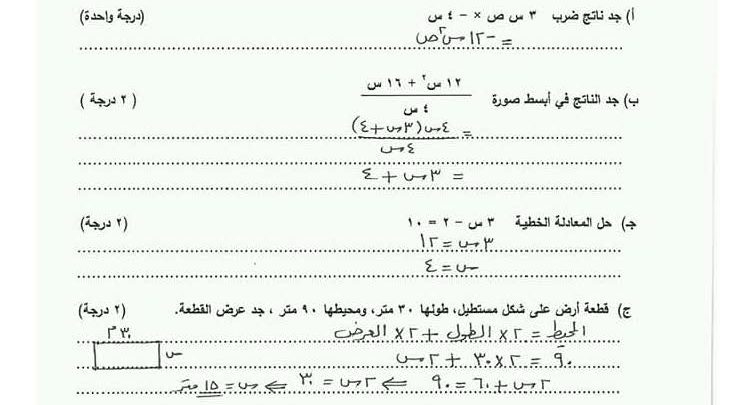 أ) جد ناتج ضرب ٣ س ص × - ٤ س (درجة واحدة)
= -١٢س٢ص
ب) جد الناتج في أبسط صورة ١٢ س٢ + ١٦ س / ٤ س (٢ درجة)
= ٤س(٣س+٤) / ٤س
= ٣س + ٤
جـ) حل المعادلة الخطية ٣ س - ٢ = ١٠ (٢ درجة)
٣س = ١٢
س = ٤
ح) قطعة أرض على شكل مستطيل، طولها ٣٠ متر، ومحيطها ٩٠ متر ، جد عرض القطعة. (٢ درجة)
المحيط = ٢× الطول + ٢× العرض
٣٠ م
٩٠ = ٢×٣٠ + ٢س
س
٢س + ٦٠ = ٩٠ ⇐ ٢س = ٣٠ ⇐ س = ١٥ متر